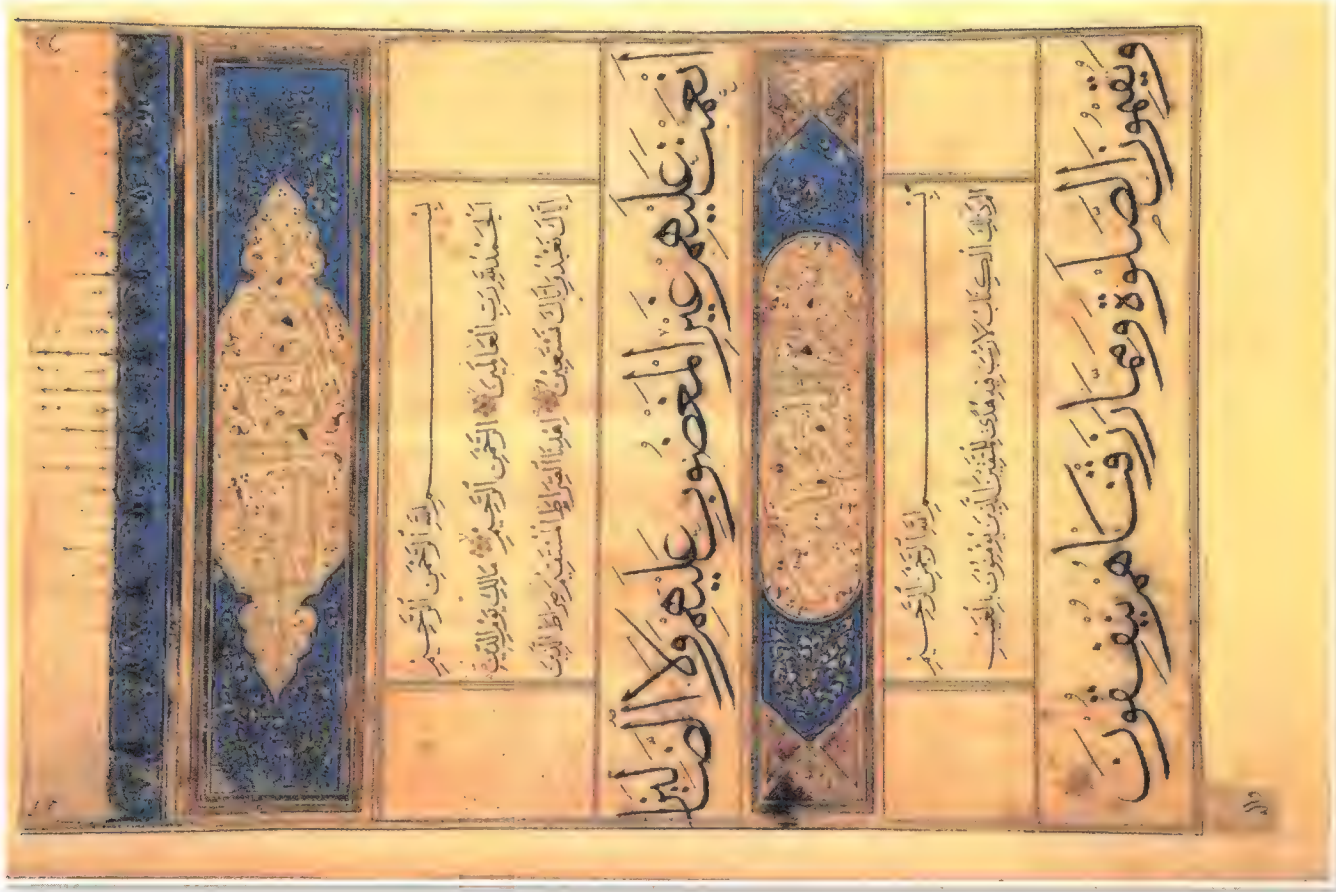 بِسْمِ اللهِ الرَّحْمٰنِ الرَّحِيْمِ
اَلْحَمْدُ لِلّٰهِ رَبِّ الْعَالَمِيْنَ الرَّحْمٰنِ الرَّحِيْمِ مَالِكِ يَوْمِ الدِّيْنِ
اِيَّاكَ نَعْبُدُ وَاِيَّاكَ نَسْتَعِيْنُ اِهْدِنَا الصِّرَاطَ الْمُسْتَقِيْمَ صِرَاطَ الَّذِيْنَ
اَنْعَمْتَ عَلَيْهِمْ غَيْرِ الْمَغْضُوْبِ عَلَيْهِمْ وَلَا الضَّالِّيْنَ
بِسْمِ اللهِ الرَّحْمٰنِ الرَّحِيْمِ
الم ذٰلِكَ الْكِتَابُ لَا رَيْبَ فِيْهِ هُدًى لِلْمُتَّقِيْنَ الَّذِيْنَ يُؤْمِنُوْنَ بِالْغَيْبِ
وَيُقِيْمُوْنَ الصَّلٰوةَ وَمِمَّا رَزَقْنَاهُمْ يُنْفِقُوْنَ